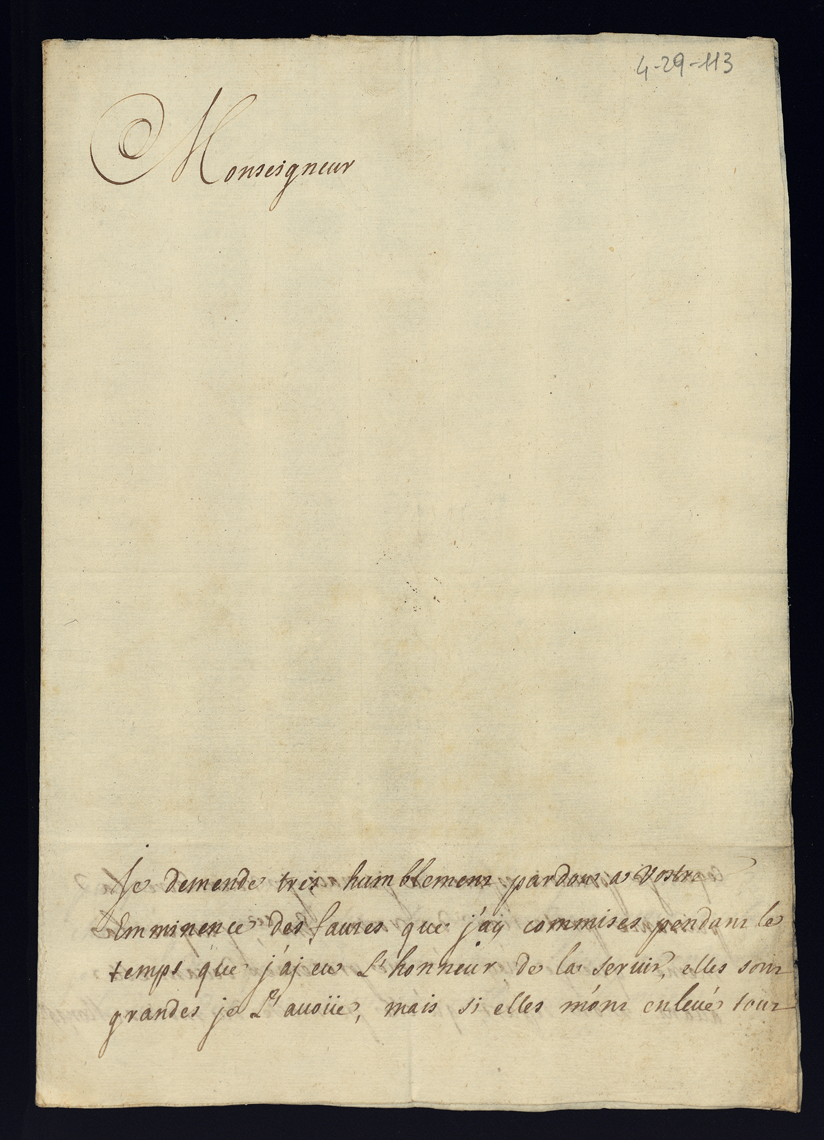 4-29-113
Monseigneur
Je demende tres humblement pardon a Vostre
Emminence des fautes que j'aÿ commises pendant le
temps que j'aj eu L'honneur de la seruir, elles sont
grandes je L'auoüe, mais si elles m'ont enleué tout